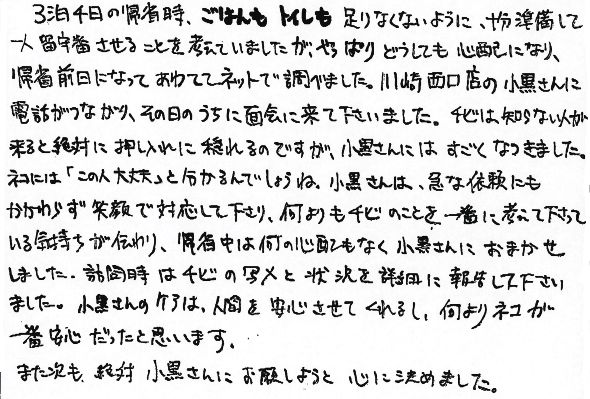 3泊4日の帰省時、ごはんも トイレも 足りなくないように、十分準備して
一人 留守番させることを考えていましたが、やっぱり どうしても 心配になり、
帰省前日になって あわててネットで調べました。川崎西口店の小黒さんに
電話がつながり、その日のうちに面会に来て下さいました。チビは知らない人が
来ると絶対に 押し入れに 隠れるのですが、小黒さんには すごく なつきました。
ネコには「この人大丈夫」と分かるんでしょうね。小黒さんは、急な依頼にも
かかわらず 笑顔で対応して下さり、何よりもチビのことを一番に考えて下さって
いる気持ちが伝わり、帰省中は何の心配もなく 小黒さんに おまかせ
しました。訪問時はチビの写メと状況を詳細に報告して下さい
ました。小黒さんのケアは、人間を安心させてくれるし、何よりネコが
一番安心だったと思います。
また次も、絶対 小黒さんに お願しようと 心に決めました。